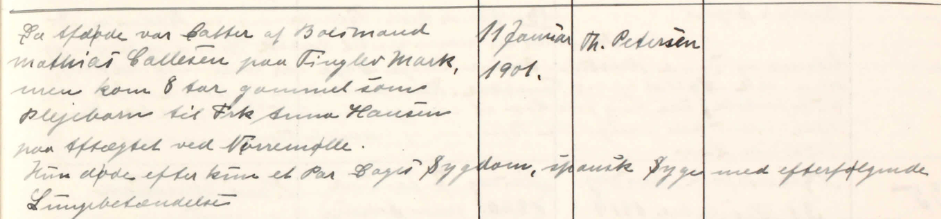 Da Afdøde var Datter af Boelsmand 11 Januar Th. Petersen
Mathias Callesen paa Tinglev Mark, 1901.
men kom 8 Aar gammel som
Plejebarn til Frk Anna Hansen
paa Aftægtet ved Nørremølle.
Hun døde efter kun et Par Dages Sygdom, spansk Syge med efterfølgende
Lungebetændelse